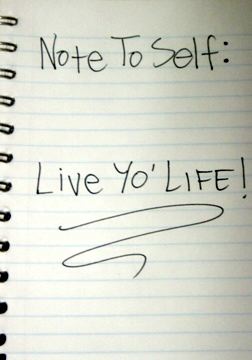 Note To Self:
Live Yo' LIFE!